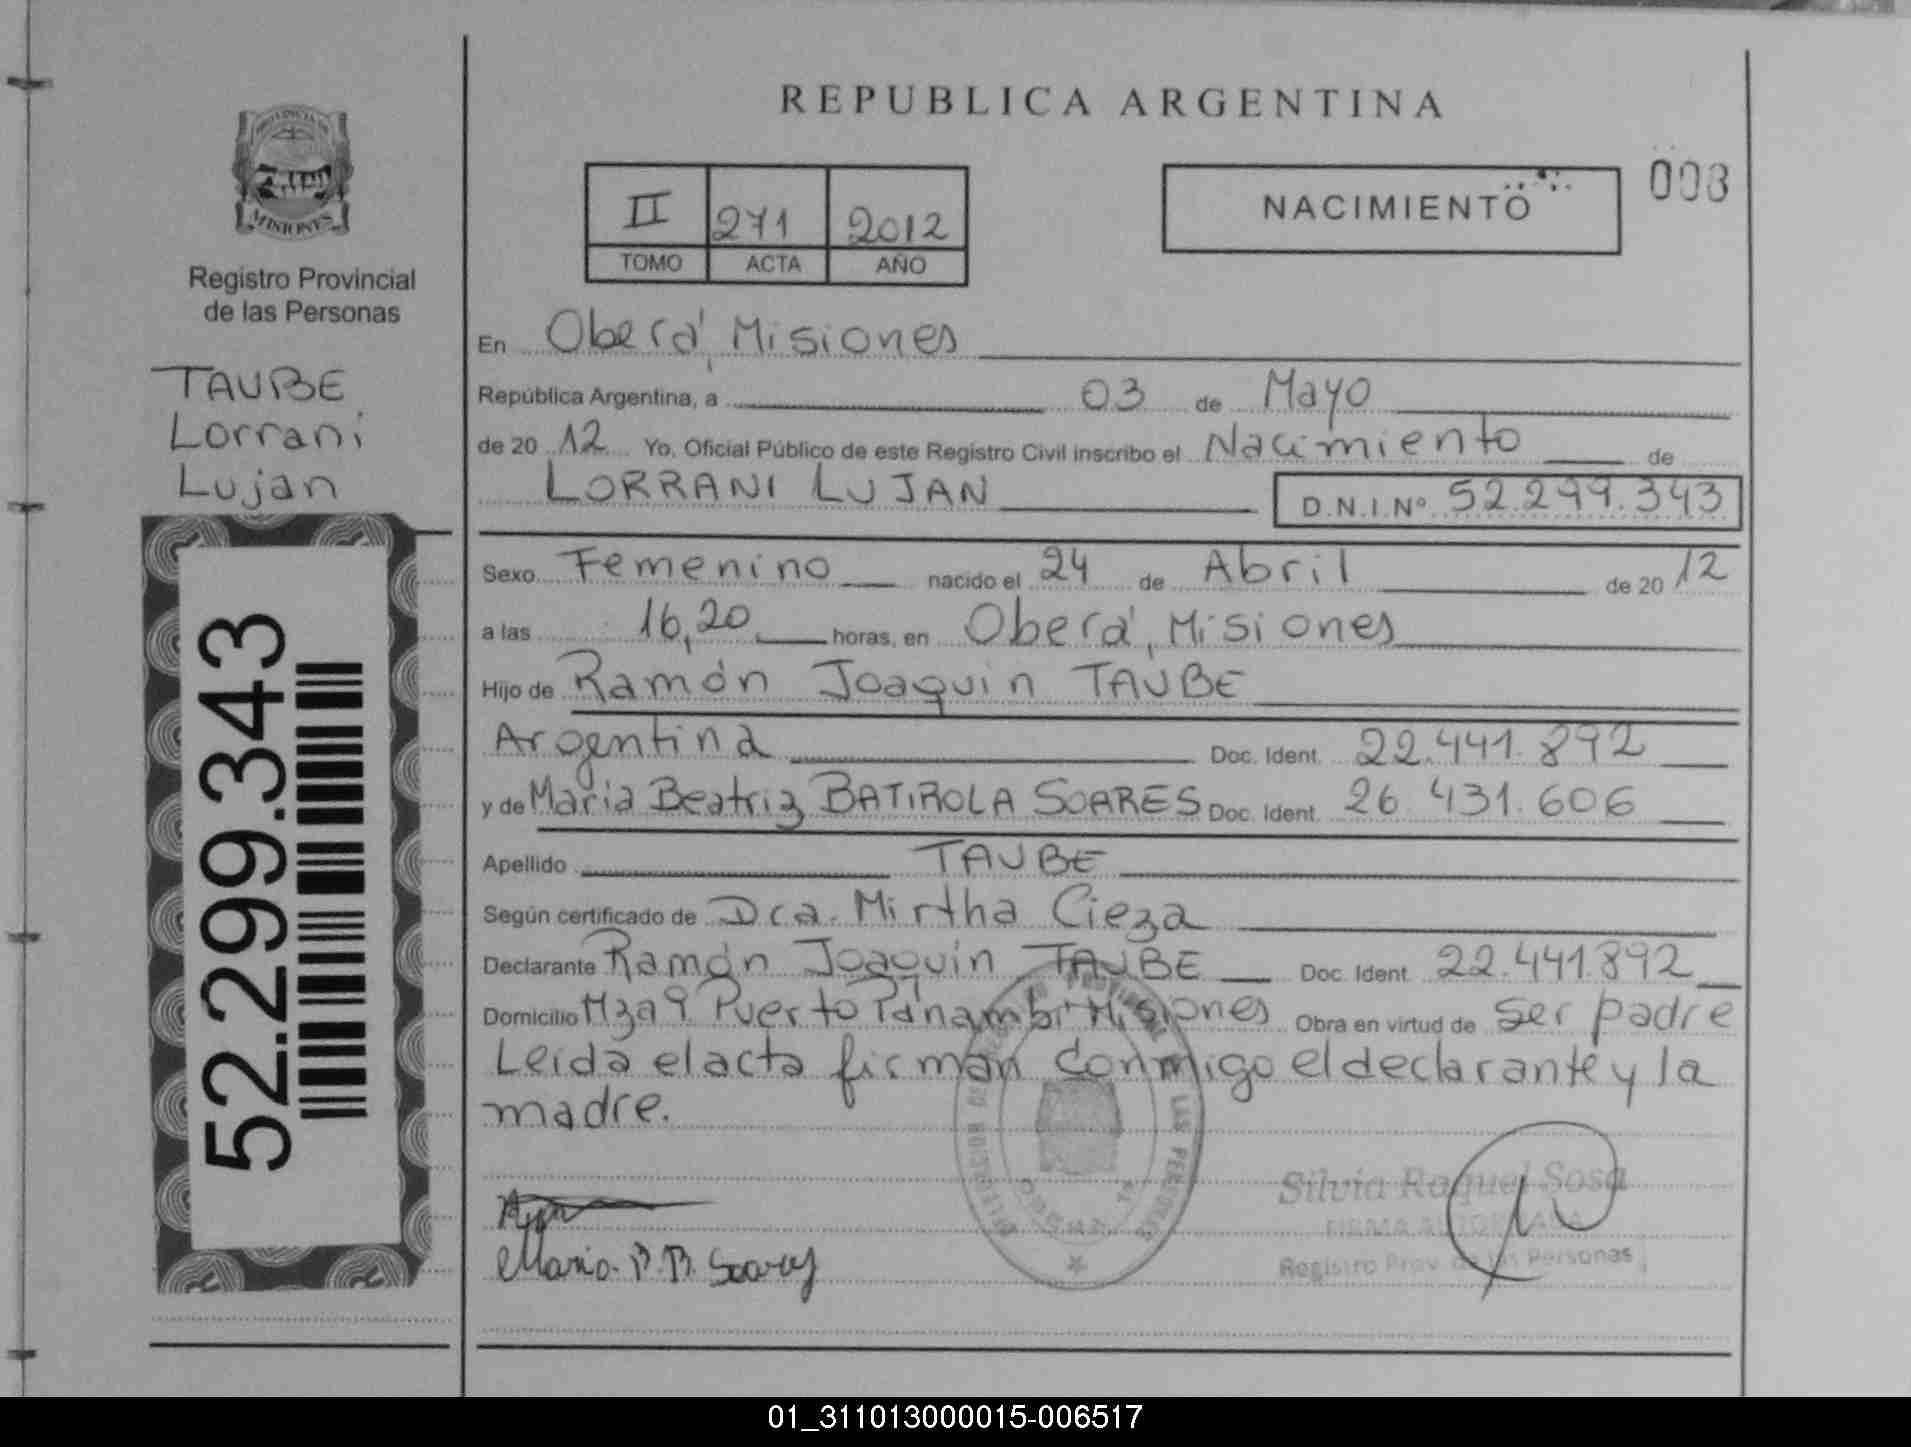 REPUBLICA ARGENTINA
MISIONES
Registro Provincial
de las Personas
TAUBE
Lorrani
Lujan
52.299.343
II 271 2012
TOMO ACTA AÑO
NACIMIENTO
003
En Oberá, Misiones
República Argentina, a 03 de Mayo
de 20 12 Yo, Oficial Público de este Registro Civil inscribo el Nacimiento de
LORRANI LUJAN D.N.I.Nº 52.299.343
Sexo Femenino nacido el 24 de Abril de 20 12
a las 16,20 horas, en Oberá, Misiones
Hijo de Ramón Joaquin TAUBE
Argentina Doc. Ident. 22.441.892
y de Maria Beatriz BATIROLA SOARES Doc. Ident. 26.431.606
Apellido TAUBE
Según certificado de Dra. Mirtha Cieza
Declarante Ramón Joaquin TAUBE Doc. Ident. 22.441.892
Domicilio Mza 9 Puerto Panambi Misiones Obra en virtud de ser padre
Leida el acta firman conmigo el declarante y la
madre.
Maria. B. B. Soares
Silvia Raquel Sosa
FIRMA AUTORIZADA
Registro Prov. de las Personas
01_311013000015-006517